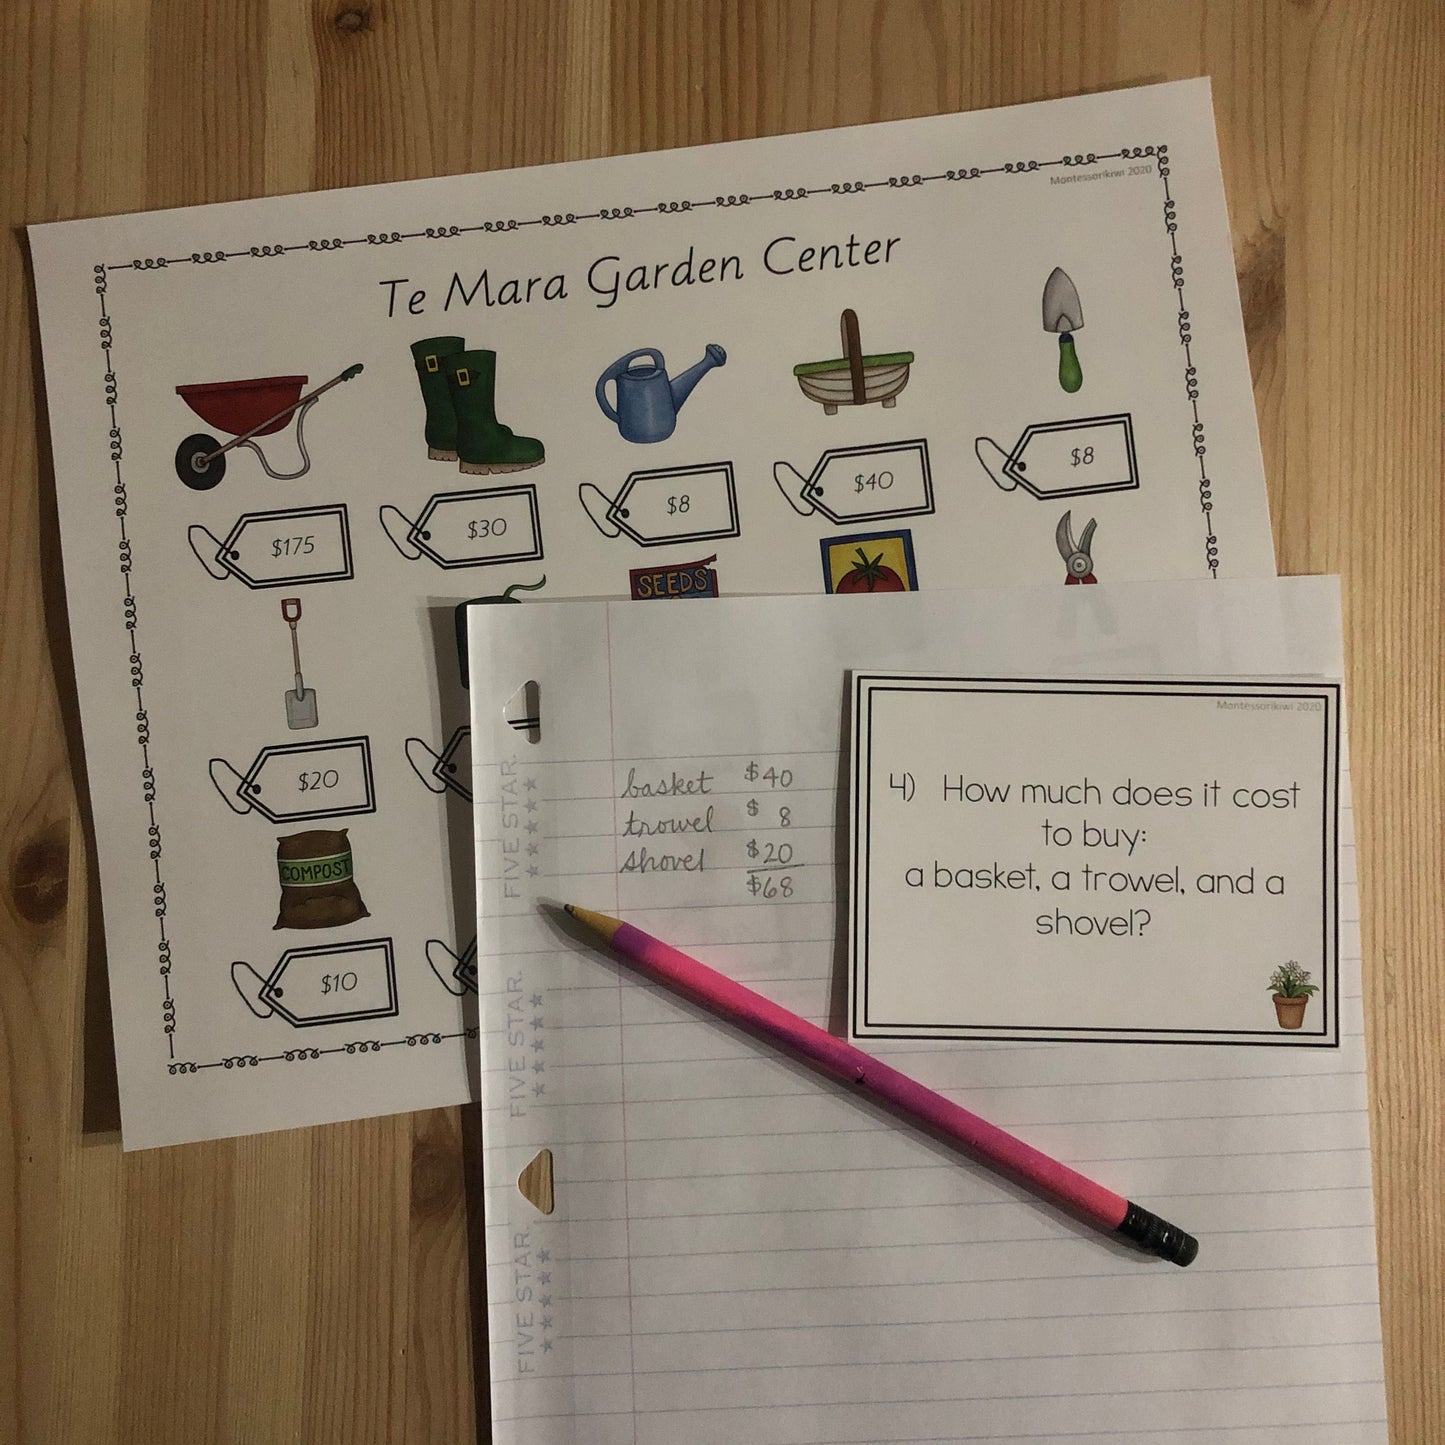 Montessorikiwi 2020
Te Mara Garden Center
$175
$30
$8
$40
$8
SEEDS
$20
COMPOST
$10
FIVE STAR.
FIVE STAR.
FIVE STAR.
basket $40
trowel $ 8
shovel $20
$68
Montessorikiwi 2020
4) How much does it cost
to buy:
a basket, a trowel, and a
shovel?